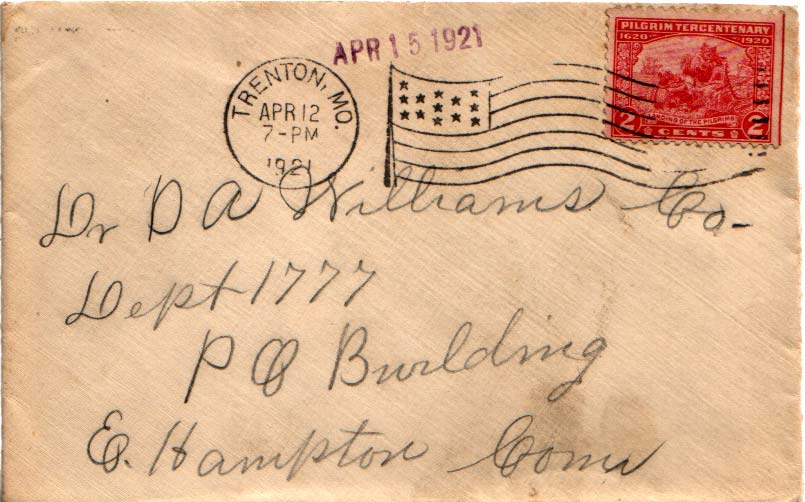 APR 15 1921
PILGRIM TERCENTENARY
1620 1920
LANDING OF THE PILGRIMS
2 CENTS 2
TRENTON, MO.
APR 12
7-PM
1921
Dr D A Williams Co-
Dept 1777
P O Building
E. Hampton Conn